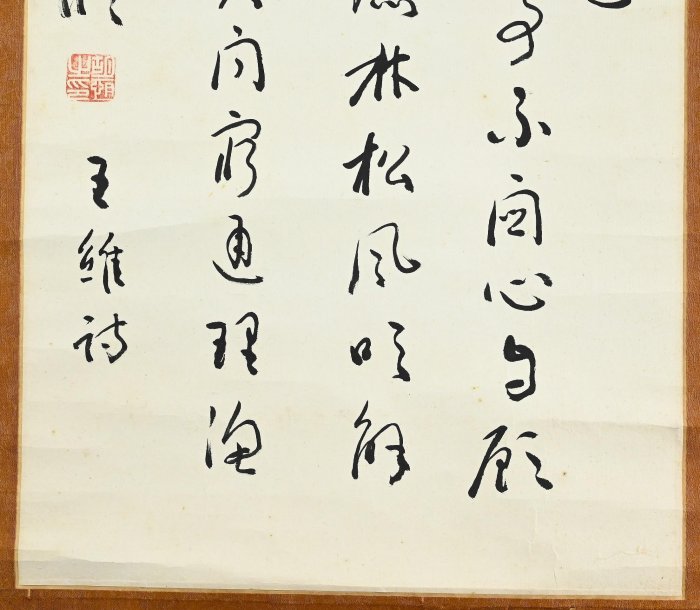 事不關心自顧
林松風吹解
問窮通理漁
王維詩